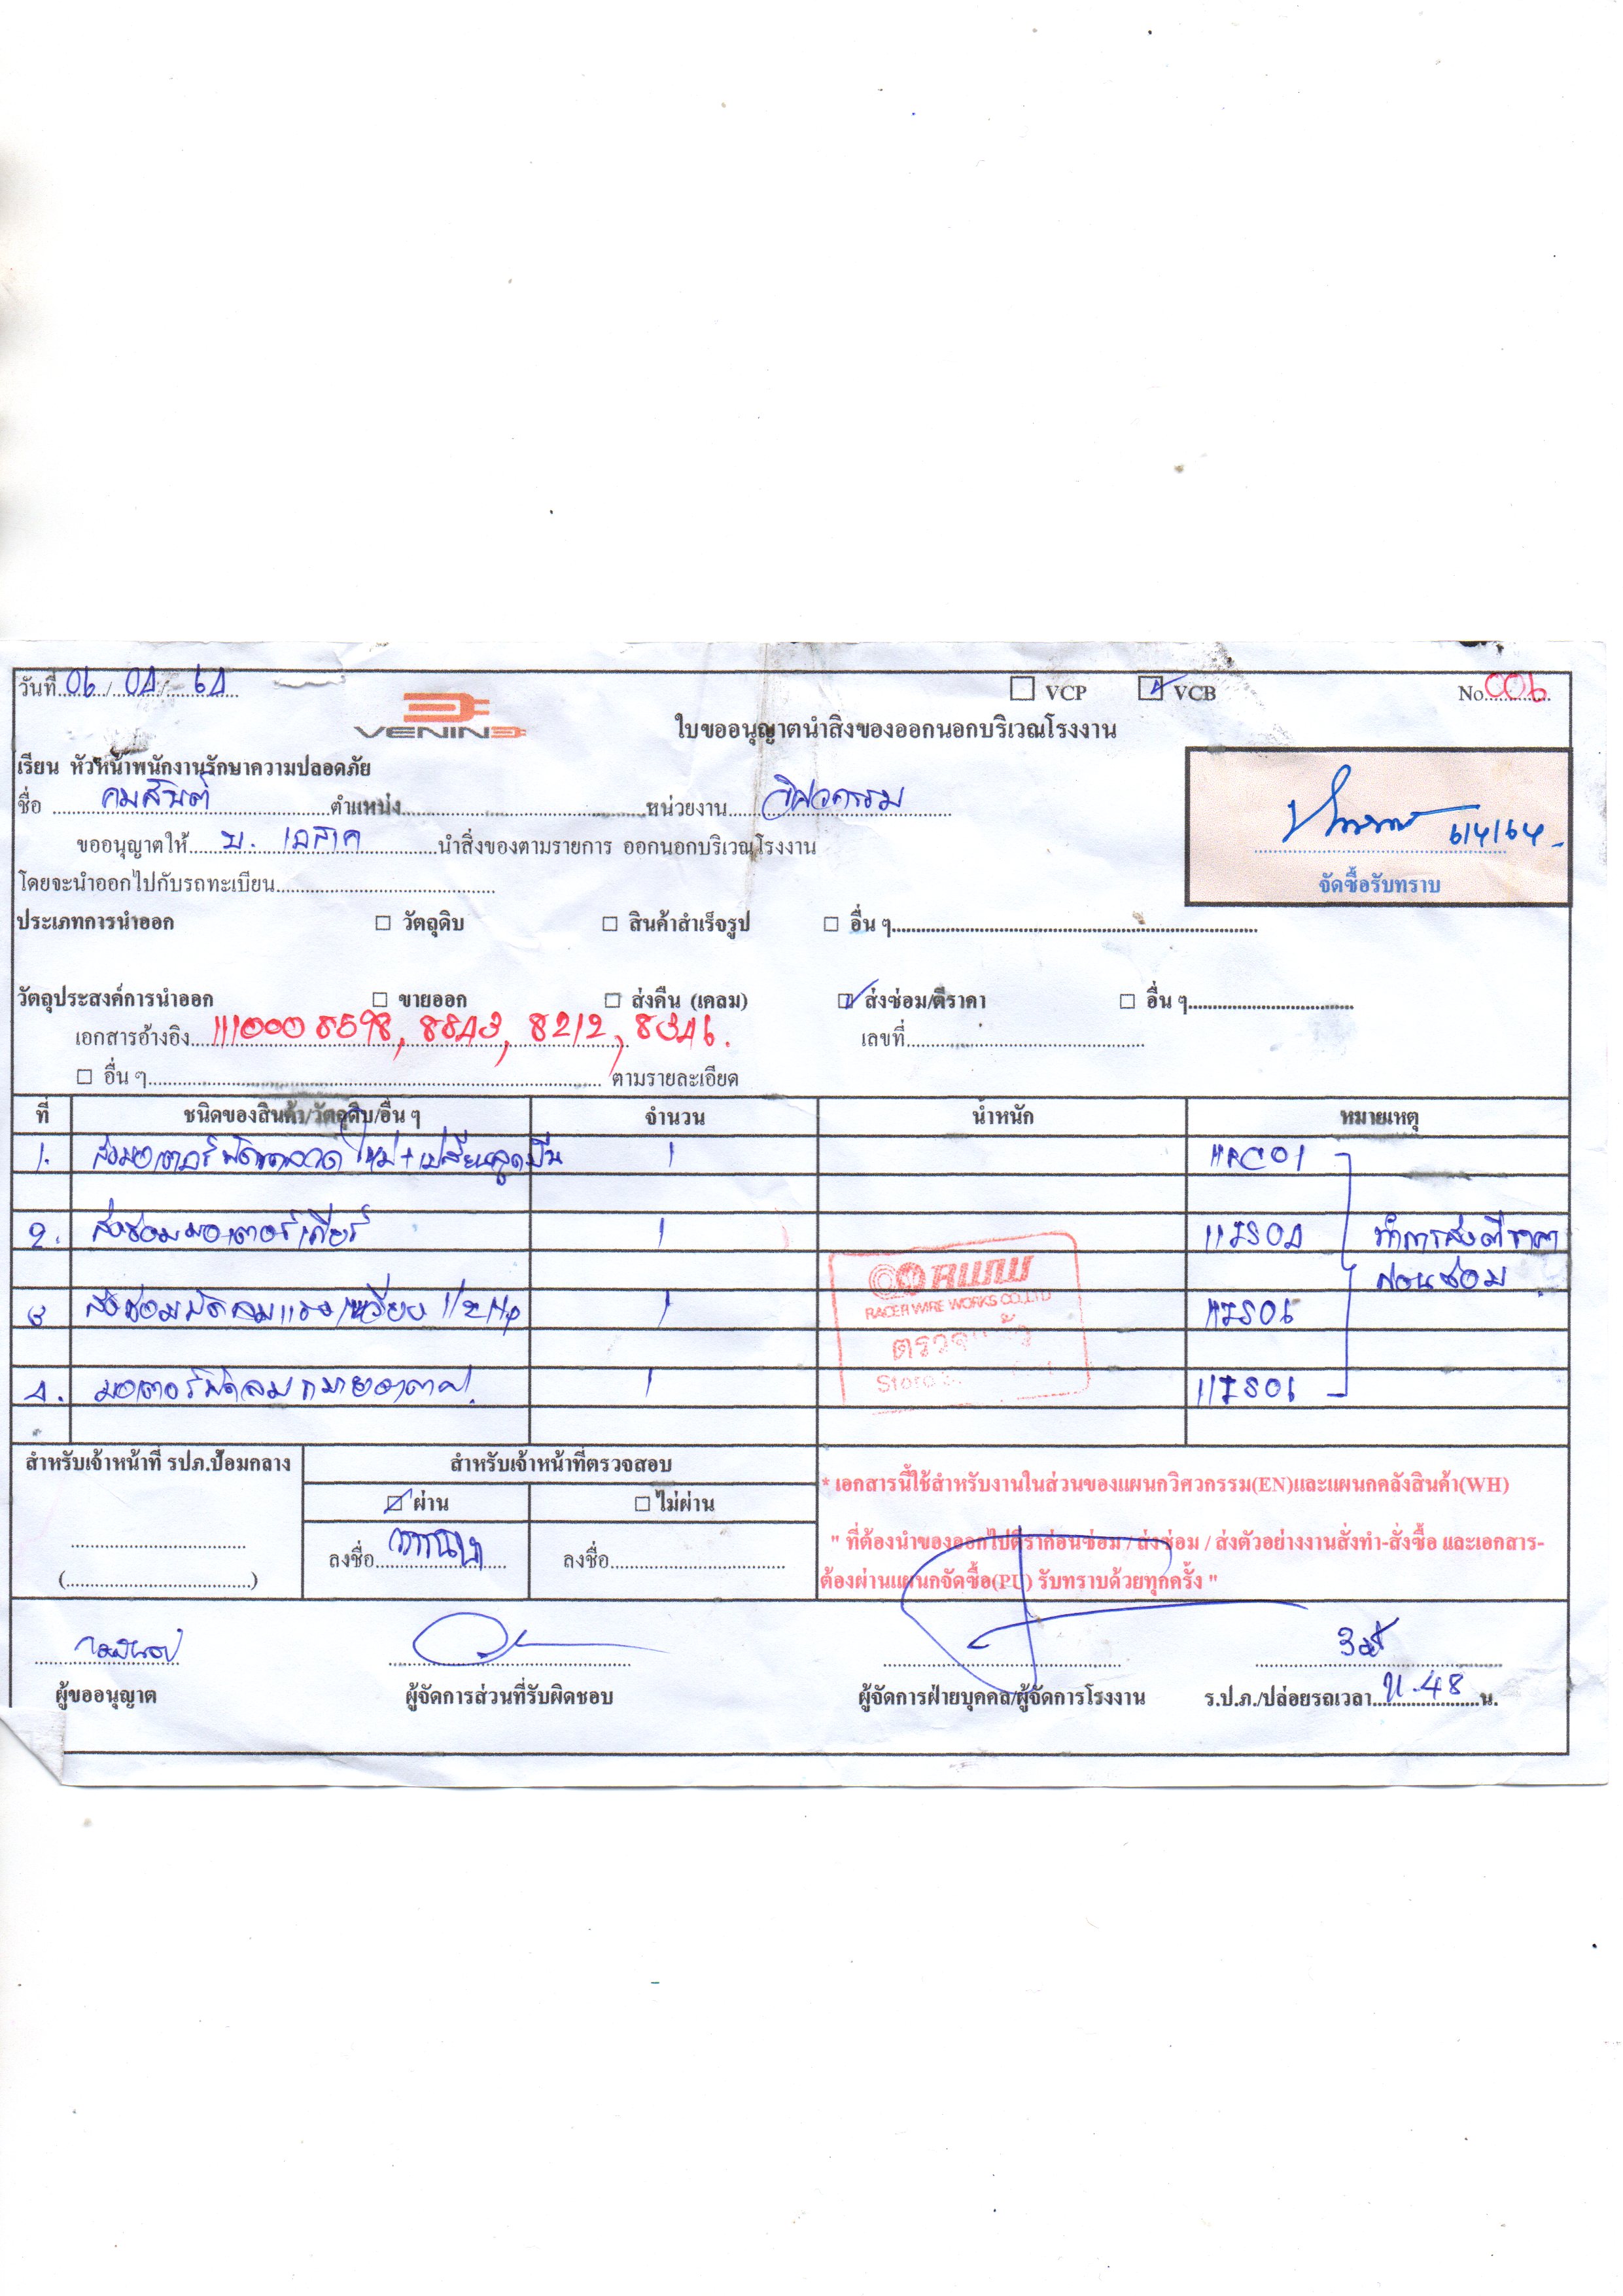 วันที่ 06 / 04 / 64
VCP VCB No. 006
VENINE
ใบขออนุญาตนำสิ่งของออกนอกบริเวณโรงงาน
เรียน หัวหน้าพนักงานรักษาความปลอดภัย
ชื่อ คมสันต์ ตำแหน่ง หน่วยงาน วิศวกรรม
6/4/64
ขออนุญาตให้ บ. นำสิ่งของตามรายการ ออกนอกบริเวณโรงงาน
จัดซื้อรับทราบ
โดยจะนำออกไปกับรถทะเบียน
ประเภทการนำออก วัตถุดิบ สินค้าสำเร็จรูป อื่น ๆ
วัตถุประสงค์การนำออก ขายออก ส่งคืน (เคลม) ส่งซ่อม/ตีราคา อื่น ๆ
เอกสารอ้างอิง 1110008598, 8843, 8212, 8346. เลขที่
อื่น ๆ ตามรายละเอียด
ที่ ชนิดของสินค้า/วัตถุดิบ/อื่น ๆ จำนวน น้ำหนัก หมายเหตุ
1. ส่งมอเตอร์พันขดลวดใหม่+เปลี่ยนลูกปืน 1
2. ส่งซ่อมมอเตอร์เกียร์ 1 11IS04 ทำการส่งตีราคา
ก่อนซ่อม
3 ส่งซ่อมพัดลมแรงเหวี่ยง 1/2 Hp 1 11IS06
4. มอเตอร์พัดลมระบายอากาศ 1 11IS06
RACER WIRE WORKS CO.,LTD
ตรวจแล้ว
Store
สำหรับเจ้าหน้าที่ รปภ.ป้อมกลาง สำหรับเจ้าหน้าที่ตรวจสอบ
ผ่าน ไม่ผ่าน
ลงชื่อ ลงชื่อ
* เอกสารนี้ใช้สำหรับงานในส่วนของแผนกวิศวกรรม(EN)และแผนกคลังสินค้า(WH)
" ที่ต้องนำของออกไปตีราก่อนซ่อม / ส่งซ่อม / ส่งตัวอย่างงานสั่งทำ-สั่งซื้อ และเอกสาร-
ต้องผ่านแผนกจัดซื้อ(PU) รับทราบด้วยทุกครั้ง "
ผู้ขออนุญาต ผู้จัดการส่วนที่รับผิดชอบ ผู้จัดการฝ่ายบุคคล/ผู้จัดการโรงงาน ร.ป.ภ./ปล่อยรถเวลา น.